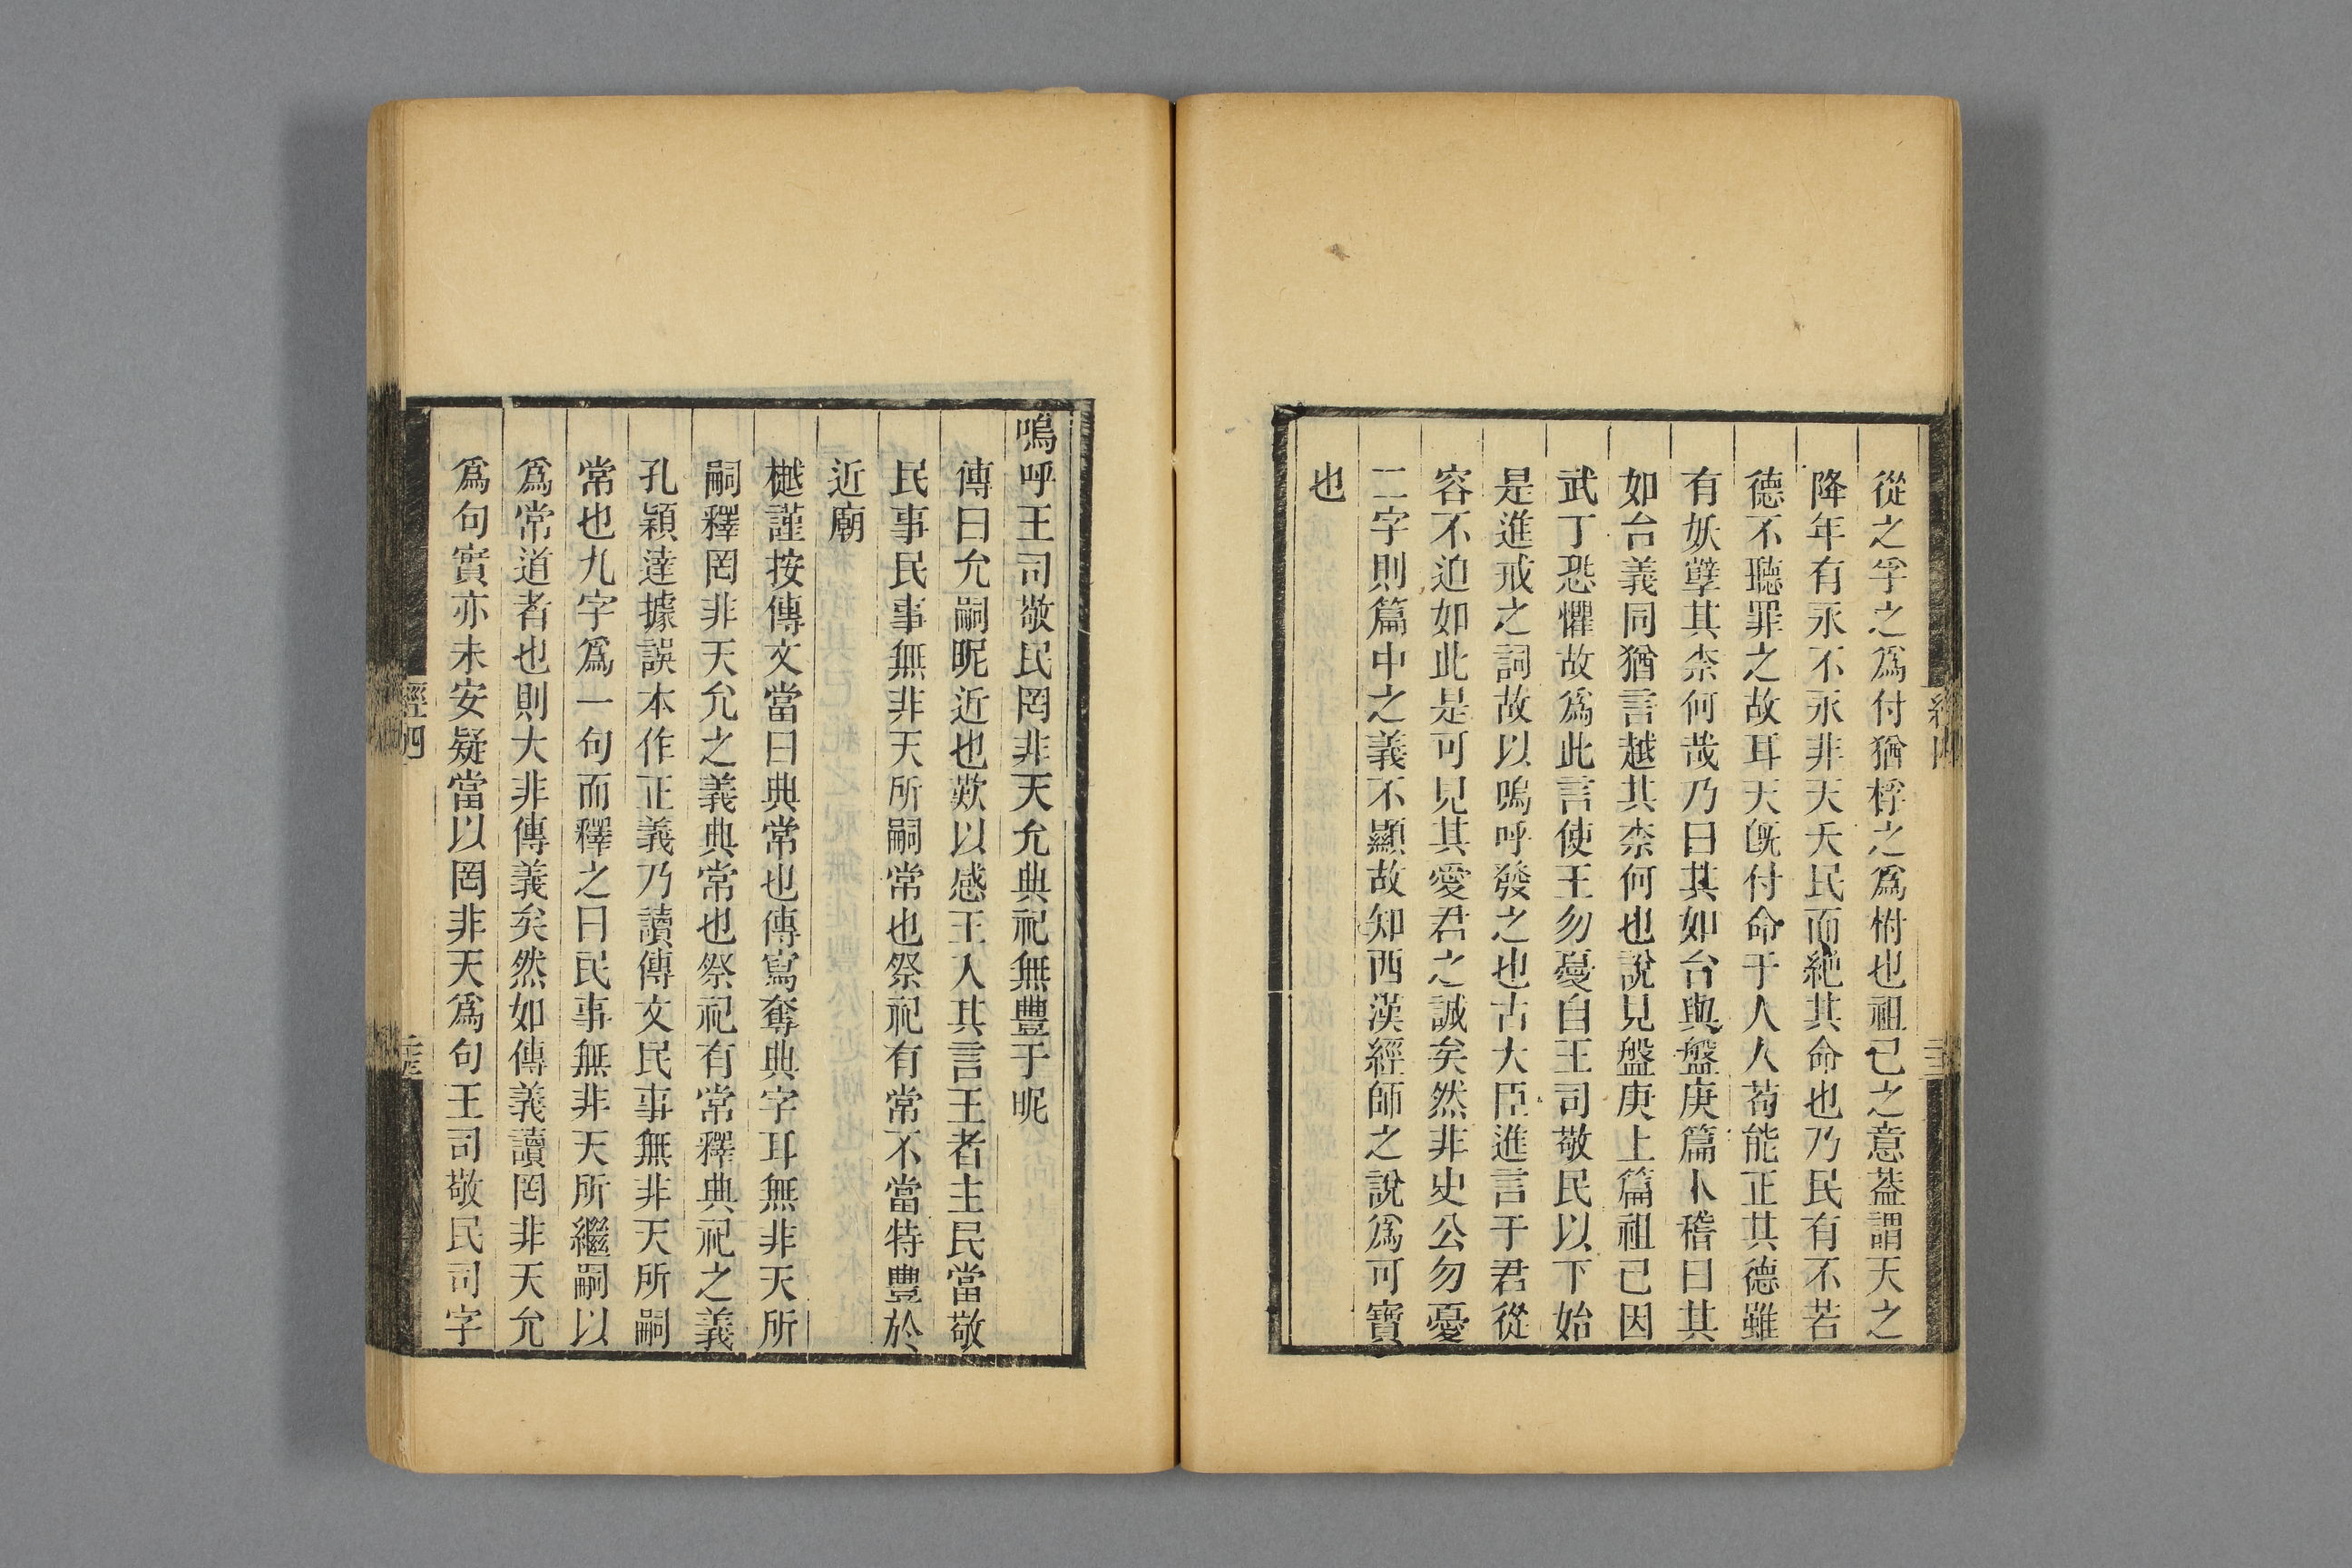 從之孚之爲付猶桴之爲柎也祖己之意葢謂天之
降年有永不永非天夭民而絶其命也乃民有不若
德不聽罪之故耳天旣付命于人人苟能正其德雖
有妖孽其柰何哉乃曰其如台與盤庚篇卜稽曰其
如台義同猶言越其柰何也說見盤庚上篇祖己因
武丁恐懼故爲此言使王勿憂自王司敬民以下始
是進戒之詞故以嗚呼發之也古大臣進言于君從
容不迫如此是可見其愛君之誠矣然非史公勿憂
二字則篇中之義不顯故知西漢經師之說爲可寶
也
嗚呼王司敬民罔非天允典祀無豐于昵
傳曰允嗣昵近也歎以感王入其言王者主民當敬
民事民事無非天所嗣常也祭祀有常不當特豐於
近廟
樾謹按傳文當曰典常也傳寫奪典字耳無非天所
嗣釋罔非天允之義典常也祭祀有常釋典祀之義
孔穎達據誤本作正義乃讀傳文民事無非天所嗣
常也九字爲一句而釋之曰民事無非天所繼嗣以
爲常道者也則大非傳義矣然如傳義讀罔非天允
爲句實亦未安疑當以罔非天爲句王司敬民司字
經四